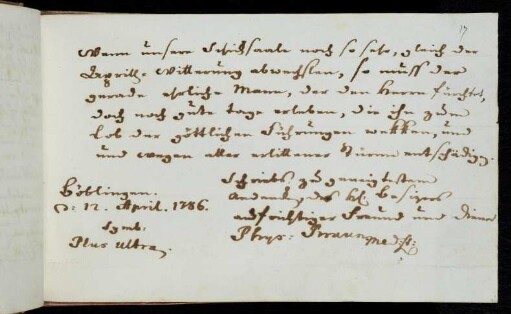 17
Wenn unsere Schicksaale noch so sehr, gleich der
Aprill-Witterung abwechslen, so muss der
gerade ehrliche Mann, der den Herrn fürchtet,
doch noch gute tage erleben, die ihn zum
Lob der göttlichen Führungen wekken, und
und wegen aller erlittener Stürme entschädigen.
Böblingen.
d: 12. April. 1786.
Symb.
Plus ultra.
Schriebs zu geneigtesten
Andenken des H. Besizers
aufrichtiger Freund und diener
Phys: